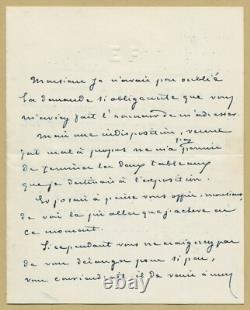 EF
Monsieur je n'avais pas oublié
la demande si obligeante que vous
m'aviez fait l'honneur de m'adresser
mais une indisposition, venue
fort mal à propos ne m'a pas permis
de terminer les deux tableaux
que je destinais à l'exposition.
Et j'osais à peine vous offrir, monsieur,
de voir la pièce que j'achève en
ce moment.
Si cependant vous ne craignez pas
de vous déranger pour si peu,
vous conviendrait-il de venir à mon
© ebay.com